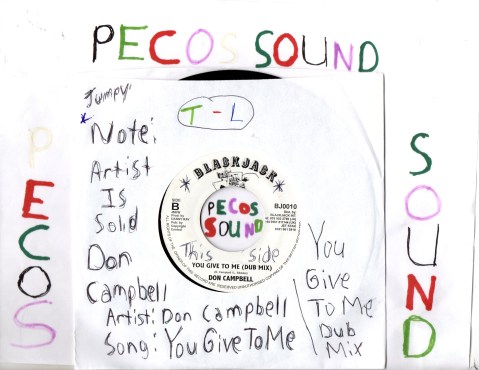 PECOS SOUND
Jumpy:
T - L
* Note:
Artist
Is
Solid
Don
Campbell
Artist: Don Campbell
Song: You Give To Me
You
Give
To Me
Dub
Mix
BLACKJACK
SIDE
B
BJ0010
PECOS
SOUND
This side
YOU GIVE TO ME (DUB MIX)
DON CAMPBELL
PECOS
SOUND